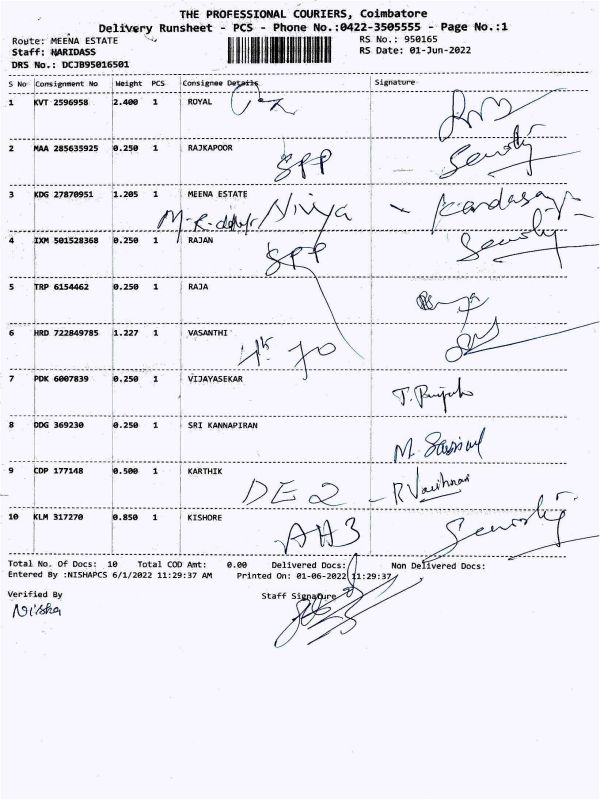 THE PROFESSIONAL COURIERS, Coimbatore
Delivery Runsheet - PCS - Phone No.:0422-3505555 - Page No.:1
Route: MEENA ESTATE RS No.: 950165
Staff: HARIDASS RS Date: 01-Jun-2022
DRS No.: DCJB95016501
S No Consignment No Weight PCS Consignee Details Signature
1 KVT 2596958 2.400 1 ROYAL
2 MAA 285635925 0.250 1 RAJKAPOOR
SPP
3 KDG 27870951 1.205 1 MEENA ESTATE
Nivya - Kandasamy
4 IXM 501528368 0.250 1 RAJAN
SPP
5 TRP 6154462 0.250 1 RAJA
6 HRD 722849785 1.227 1 VASANTHI
70
7 PDK 6007839 0.250 1 VIJAYASEKAR
8 DDG 369230 0.250 1 SRI KANNAPIRAN
9 CDP 177148 0.500 1 KARTHIK
DE 2 -
10 KLM 317270 0.850 1 KISHORE
AH3
Total No. Of Docs: 10 Total COD Amt: 0.00 Delivered Docs: Non Delivered Docs:
Entered By :NISHAPCS 6/1/2022 11:29:37 AM Printed On: 01-06-2022 11:29:37
Verified By Staff Signature
Nisha